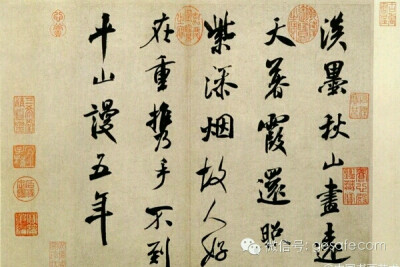 淡墨秋山畫遠
天暮霞還照
紫添烟故人好
在重攜手不到
平山謾五年
微信号: